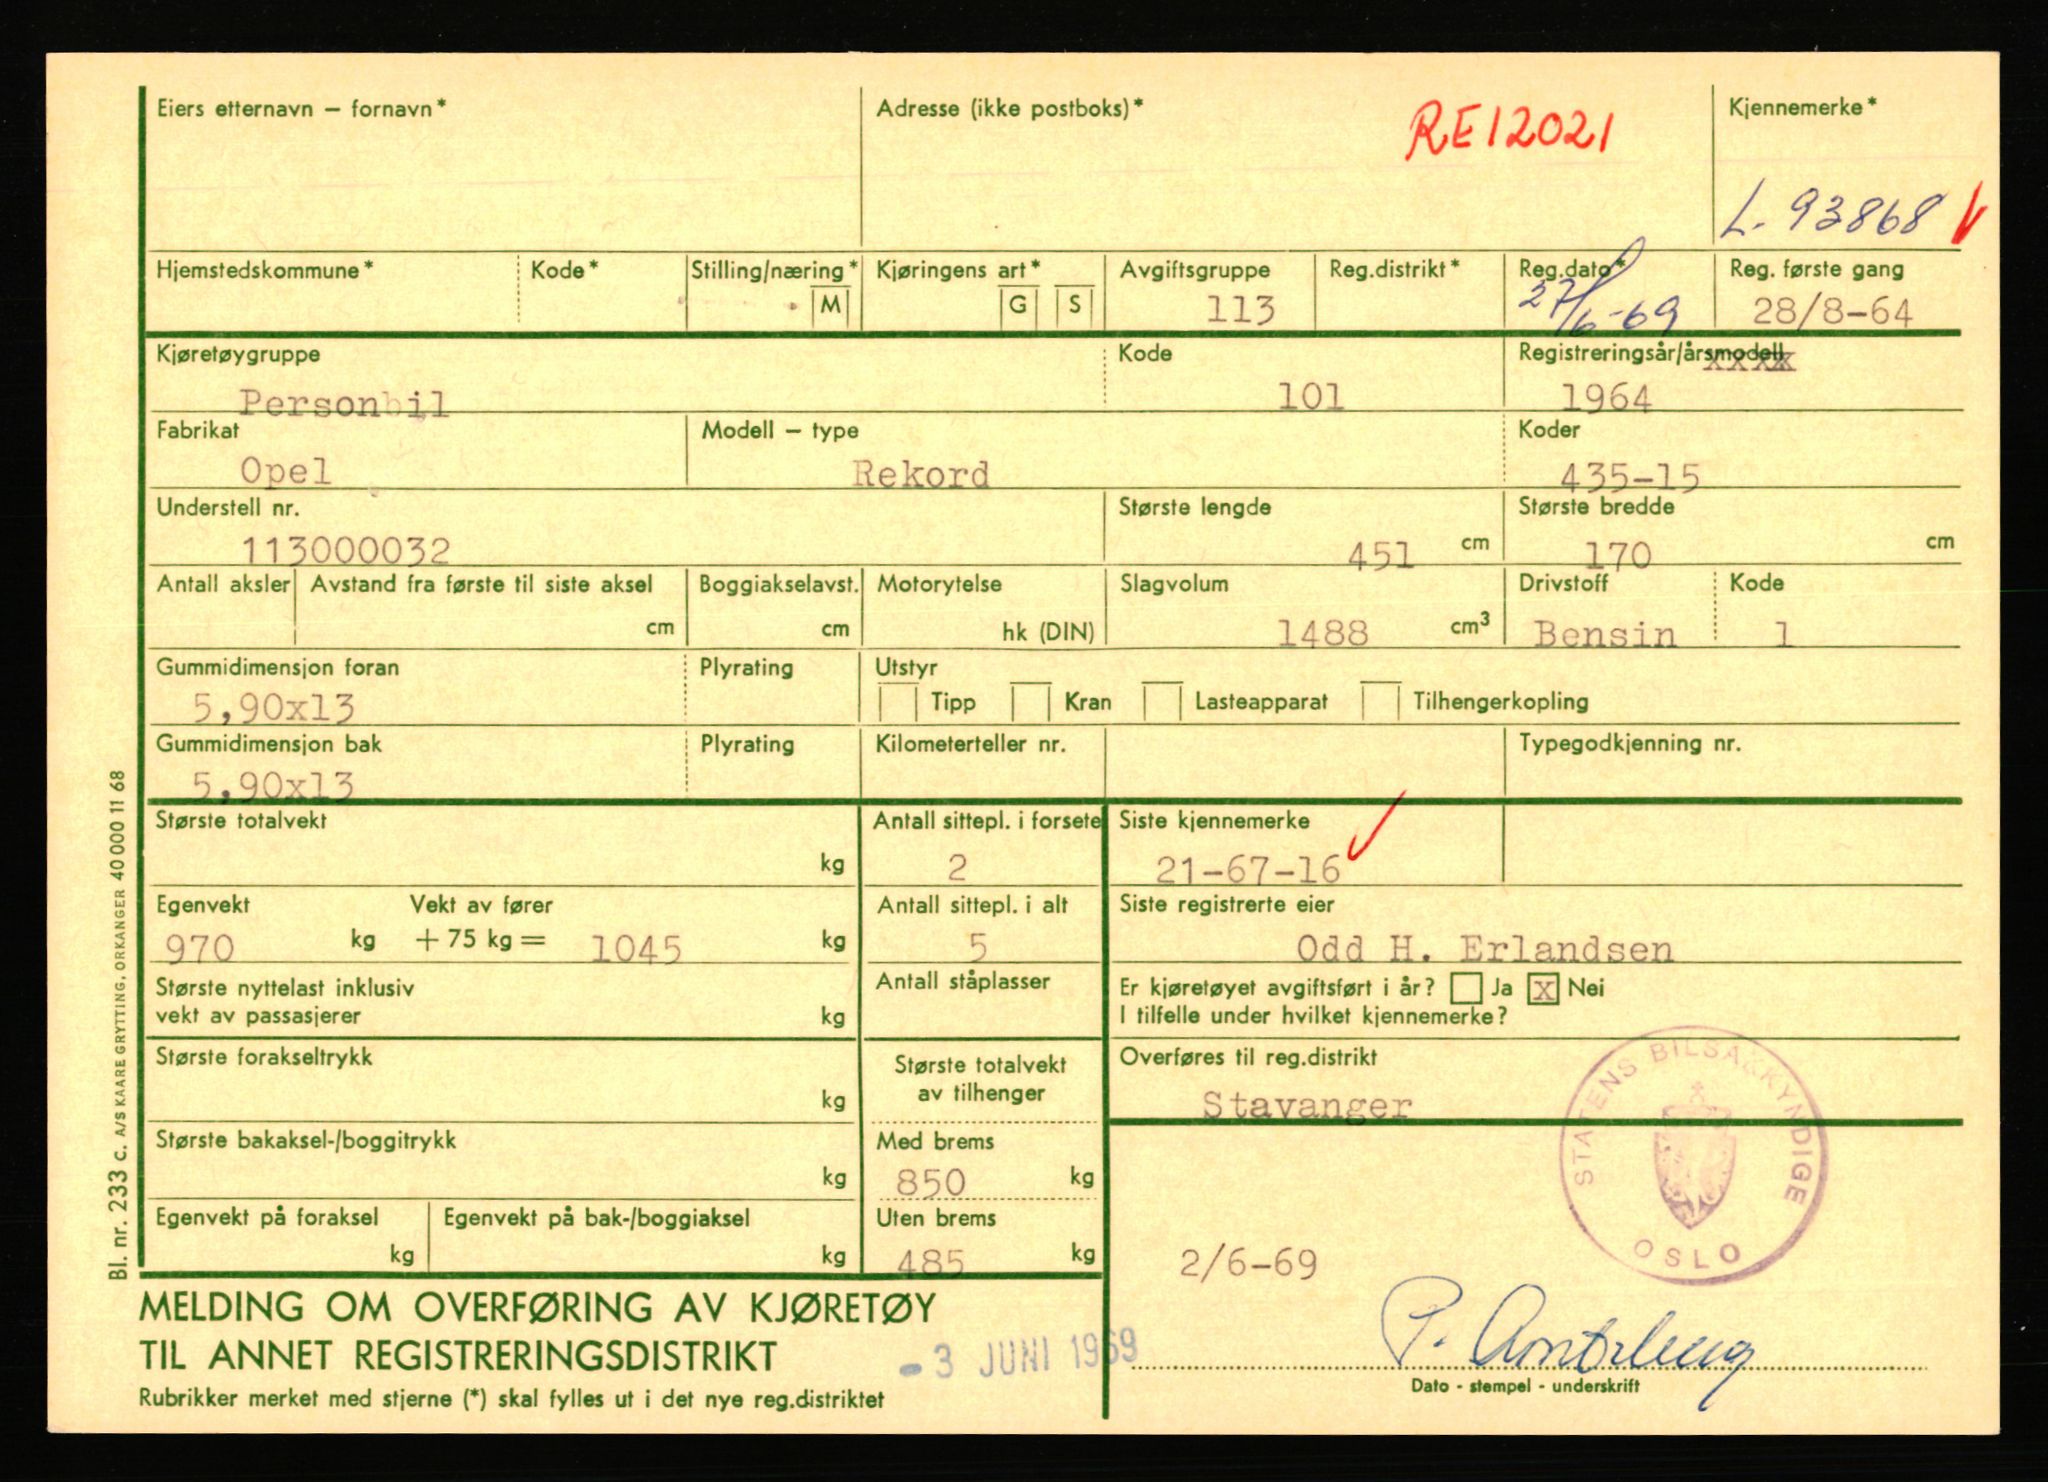 Eiers etternavn – fornavn*
Adresse (ikke postboks)*
RE12021
Kjennemerke*
L. 93868
Hjemstedskommune*
Kode*
Stilling/næring*
M
Kjøringens art*
G
S
Avgiftsgruppe
113
Reg.distrikt*
Reg.dato*
27/6-69
Reg. første gang
28/8-64
Kjøretøygruppe
Personbil
Kode
101
Registreringsår/årsmodell
xxxx
1964
Fabrikat
Opel
Modell – type
Rekord
Koder
435-15
Understell nr.
113000032
Største lengde
451 cm
Største bredde
170 cm
Antall aksler
Avstand fra første til siste aksel
cm
Boggiakselavst.
cm
Motorytelse
hk (DIN)
Slagvolum
1488 cm³
Drivstoff
Bensin
Kode
1
Gummidimensjon foran
5,90x13
Plyrating
Utstyr
Tipp
Kran
Lasteapparat
Tilhengerkopling
Gummidimensjon bak
5,90x13
Plyrating
Kilometerteller nr.
Typegodkjenning nr.
Største totalvekt
kg
Antall sittepl. i forsete
2
Siste kjennemerke
21-67-16
Egenvekt
970 kg
Vekt av fører
+ 75 kg = 1045 kg
Antall sittepl. i alt
5
Siste registrerte eier
Odd H. Erlandsen
Største nyttelast inklusiv
vekt av passasjerer
kg
Antall ståplasser
Er kjøretøyet avgiftsført i år? Ja x Nei
I tilfelle under hvilket kjennemerke?
Største forakseltrykk
kg
Største totalvekt
av tilhenger
Overføres til reg.distrikt
Stavanger
Største bakaksel-/boggitrykk
kg
Med brems
850 kg
Egenvekt på foraksel
kg
Egenvekt på bak-/boggiaksel
kg
Uten brems
485 kg
STATENS BILSAKKYNDIGE
OSLO
2/6-69
MELDING OM OVERFØRING AV KJØRETØY
TIL ANNET REGISTRERINGSDISTRIKT
Rubrikker merket med stjerne (*) skal fylles ut i det nye reg.distriktet
- 3 JUNI 1969
Dato - stempel - underskrift
Bl. nr. 233 c. A/S KAARE GRYTTING, ORKANGER 40 000 11 68